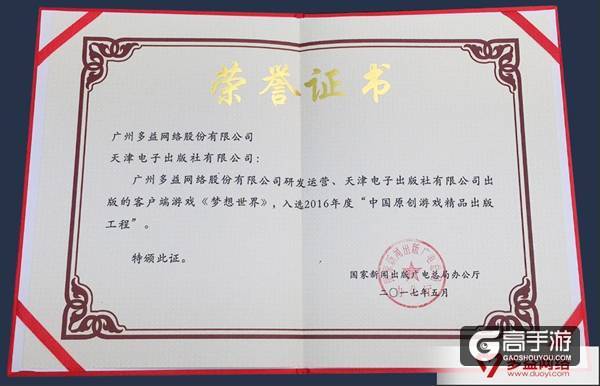 荣誉证书
广州多益网络股份有限公司
天津电子出版社有限公司：
广州多益网络股份有限公司研发运营、天津电子出版社有限公司出
版的客户端游戏《梦想世界》，入选2016年度“中国原创游戏精品出版
工程”。
特颁此证。
国家新闻出版广电总局办公厅
二〇一七年五月
高手游
GAOSHOUYOU.COM
多益网络
www.duoyi.com